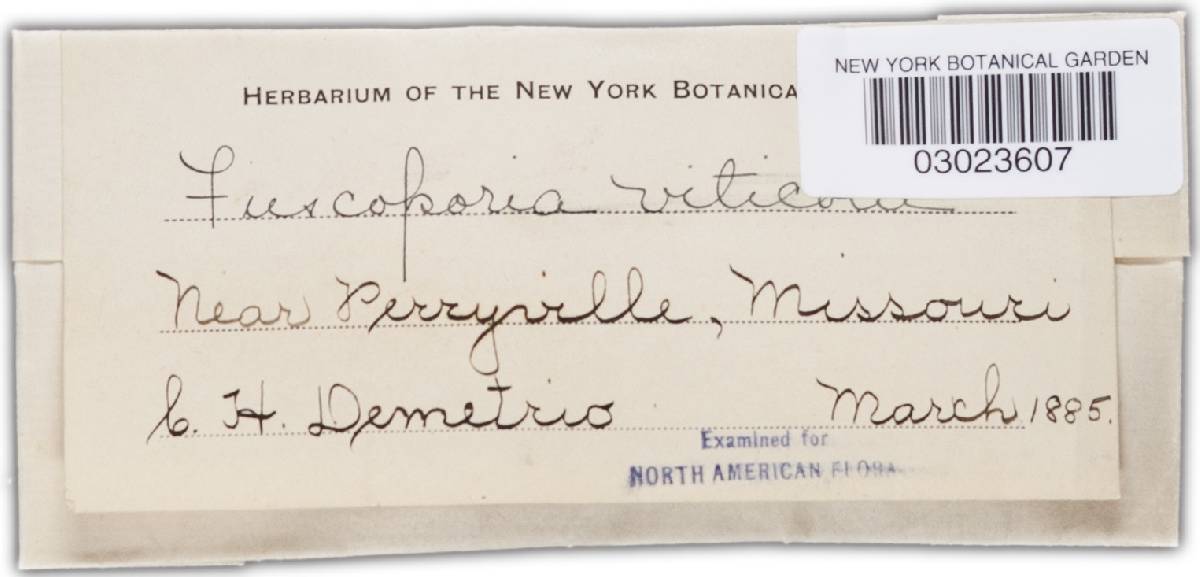 HERBARIUM OF THE NEW YORK BOTANICA
NEW YORK BOTANICAL GARDEN
03023607
Fuscoporia viticola
Near Perryville, Missouri
C. H. Demetrio March 1885.
Examined for
NORTH AMERICAN FLORA